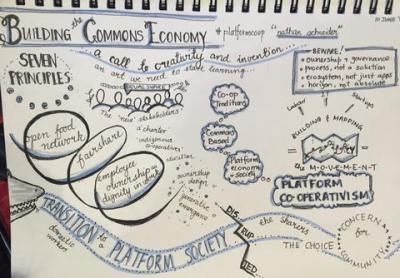 BUILDING the COMMONS ECONOMY
#platformcoop "nathan schneider"
... a call to creativity and invention...
an art we need to start learning...
SEVEN
PRINCIPLES
BEWARE!
• ownership ≠ governance
• process, not a solution
• ecosystem, not just apps
• horizon, not absolute
The "new" stakeholders
a charter
Co-op
Traditions
Commons
Based
Platform
economy + society
open food
network
fairshare
employee
ownership =
dignity in work
education
ownership
design
generative
Labour
Startups
BUILDING + MAPPING
the MOVEMENT
PLATFORM
CO-OPERATIVISM
TRANSITION to a
PLATFORM SOCIETY
domestic
workers
DIS
RUP
TED
the sharers
THE CHOICE
CONCERN
for
COMMUNITY